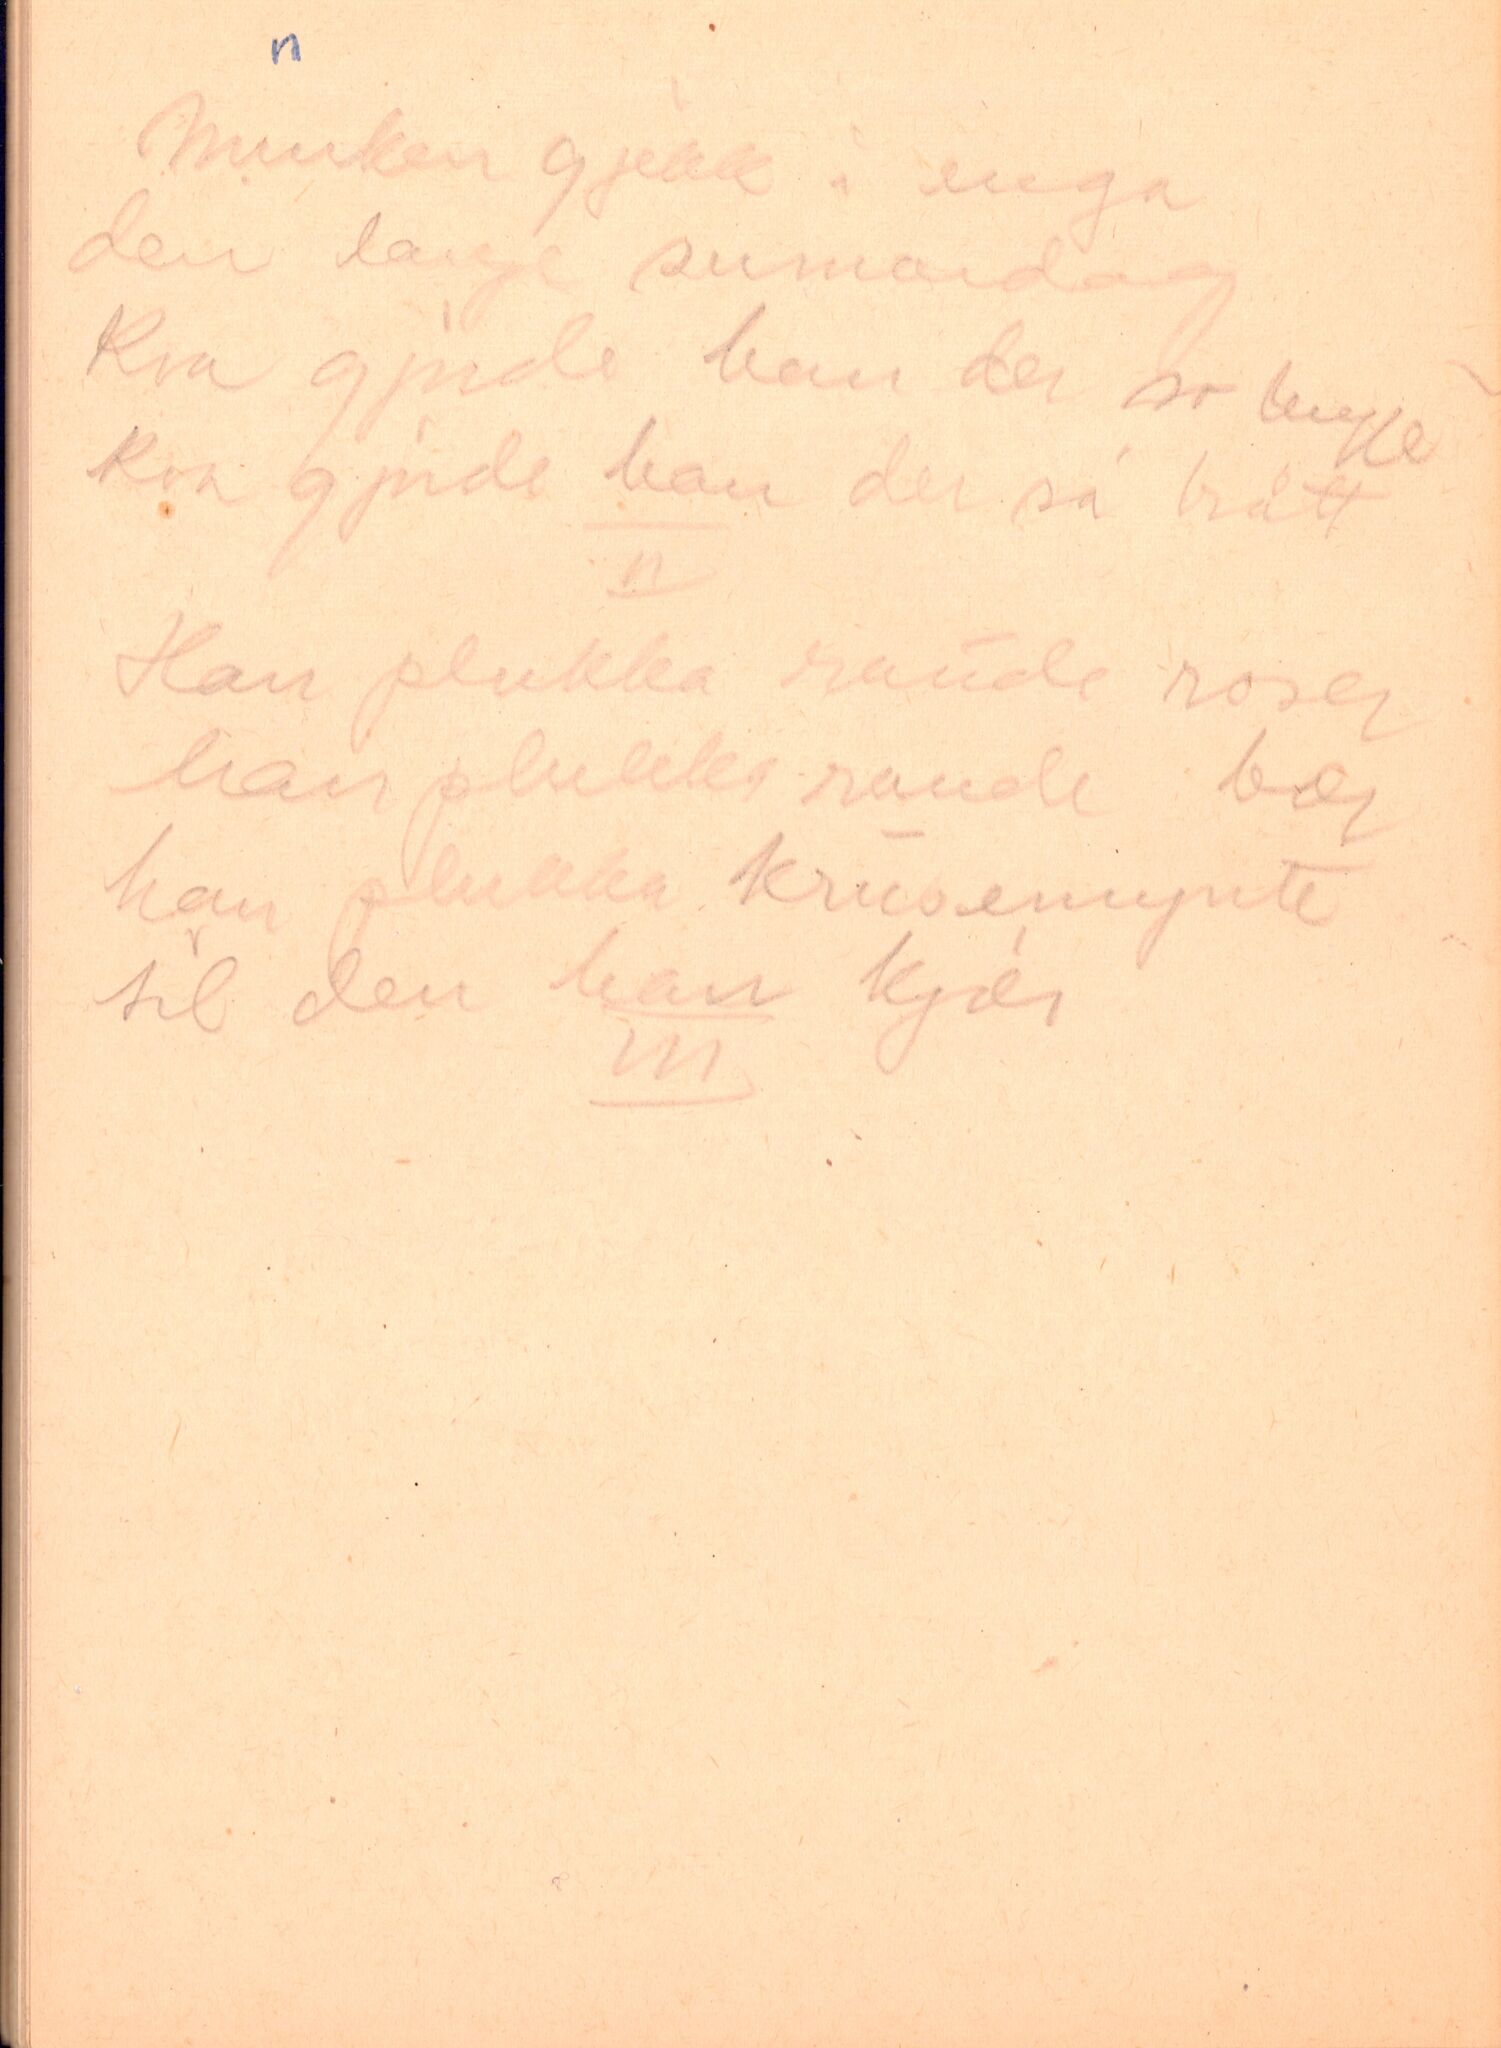 n
Munken gjekk i enga
den lange sumardag
Kva gjorde han der so mykje
kva gjorde han der så brått
II
Han plukka raude roser
han plukka raude bær
han plukka krusemynte
til den han kjær
III